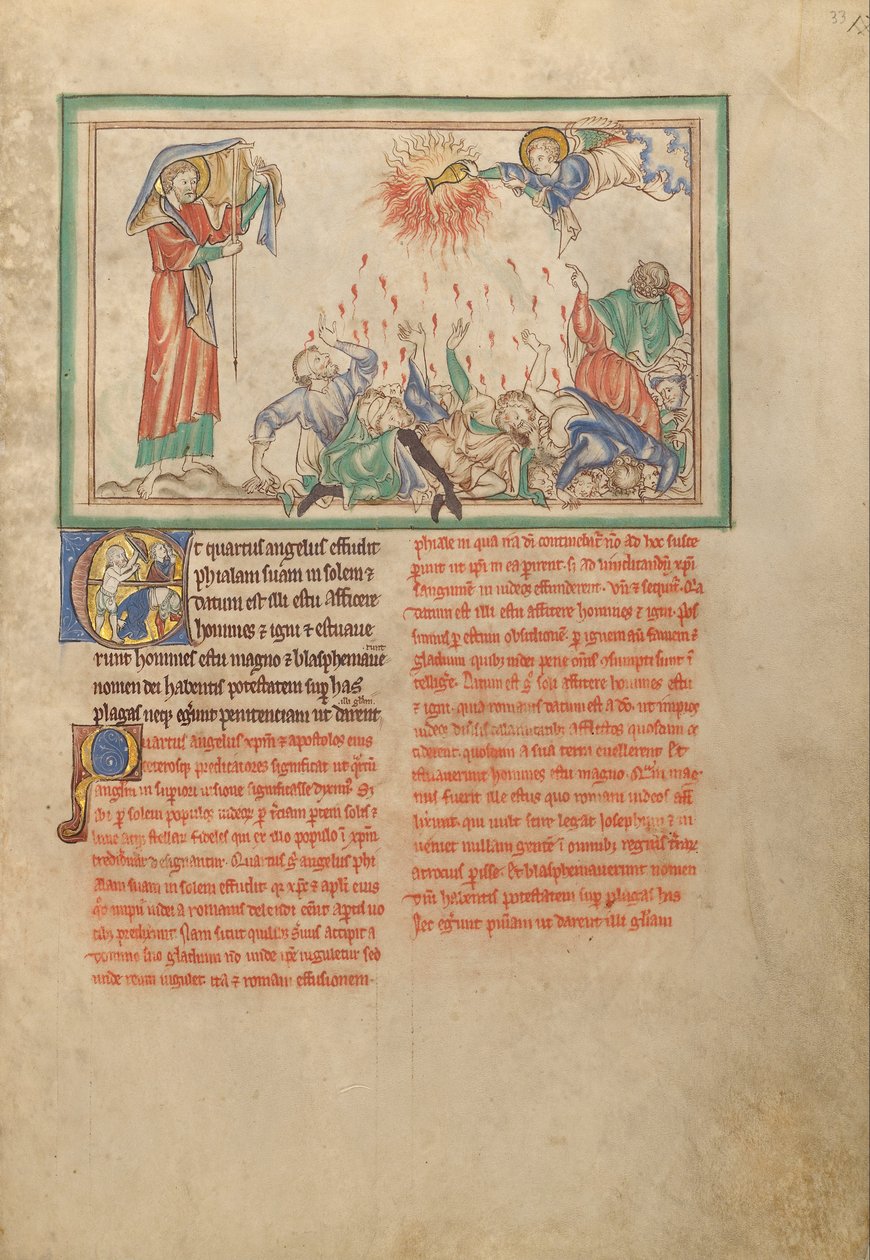 33
Et quartus angelus effudit
phialam suam in solem ⁊
datum est illi estu afficere
homines ⁊ igni ⁊ estuaue
runt homines estu magno ⁊ blasphemaue
runt
nomen dei habentis potestatem sup has
plagas neqꝫ egerunt penitenciam ut darent
illi gl̃iam
Quartus angelus xp̃m ⁊ apostolos eius
ceterosqꝫ predicatores significat ut quartũ
angl̃m in superiori uisione significasse diximus. Sꝫ
ibi ꝑ solem populus iudeorꝫ ꝑ t̃ciam partem solis ⁊
lune atqꝫ stellarꝫ fideles qui ex illo populo ĩ xp̃m
crediderant designantur. Quartus g̃ angelus phi
alam suam in solem effudit. qꝛ xp̃c ⁊ apl̃i eius
qd̃ impii iudei a romanis delendi cẽnt aperta uo
ce predixerunt. Nam sicut quilibꝫ s̃uus accipit a
domino suo gladium nõ unde ip̃e iuguletur sed
unde reum iugulet. ita ⁊ romani effusionem
phiale in qua ira dĩ continebat̃ nõ ad hoc susce
perunt ut ip̃i in ea perirent. sꝫ ad uindicandũ xp̃i
sanguinem in iudeos effunderent. Vñ ⁊ sequit̃. Et
datum est illi estu afficere homines ⁊ igni. Pos
sumus ꝑ estum obsidionem. ꝑ ignem aũ famem ⁊
gladium quibꝫ iudei pene om̃s ↄsumpti sunt ĩ
tellige. Datum est g̃ soli afficere homines estu
⁊ igni. quia romanis datum est a dõ. ut impios
iudeos diuersis calamitatibꝫ afflictos quosdam oc
ciderent. quosdam a sua terra euellerent. Et
estuauerunt homines estu magno. Quam mag
nus fuerit ille estus quo romani iudeos affl
ixerunt. qui uult scire legat Iosephum ⁊ in
ueniet nullam gentẽ ĩ omnibꝫ regnis t̃rarꝫ
atrocius ꝑisse. Et blasphemauerunt nomen
dñi habentis potestatem sup plagas has
Nec egerunt pnĩam ut darent illi gl̃iam